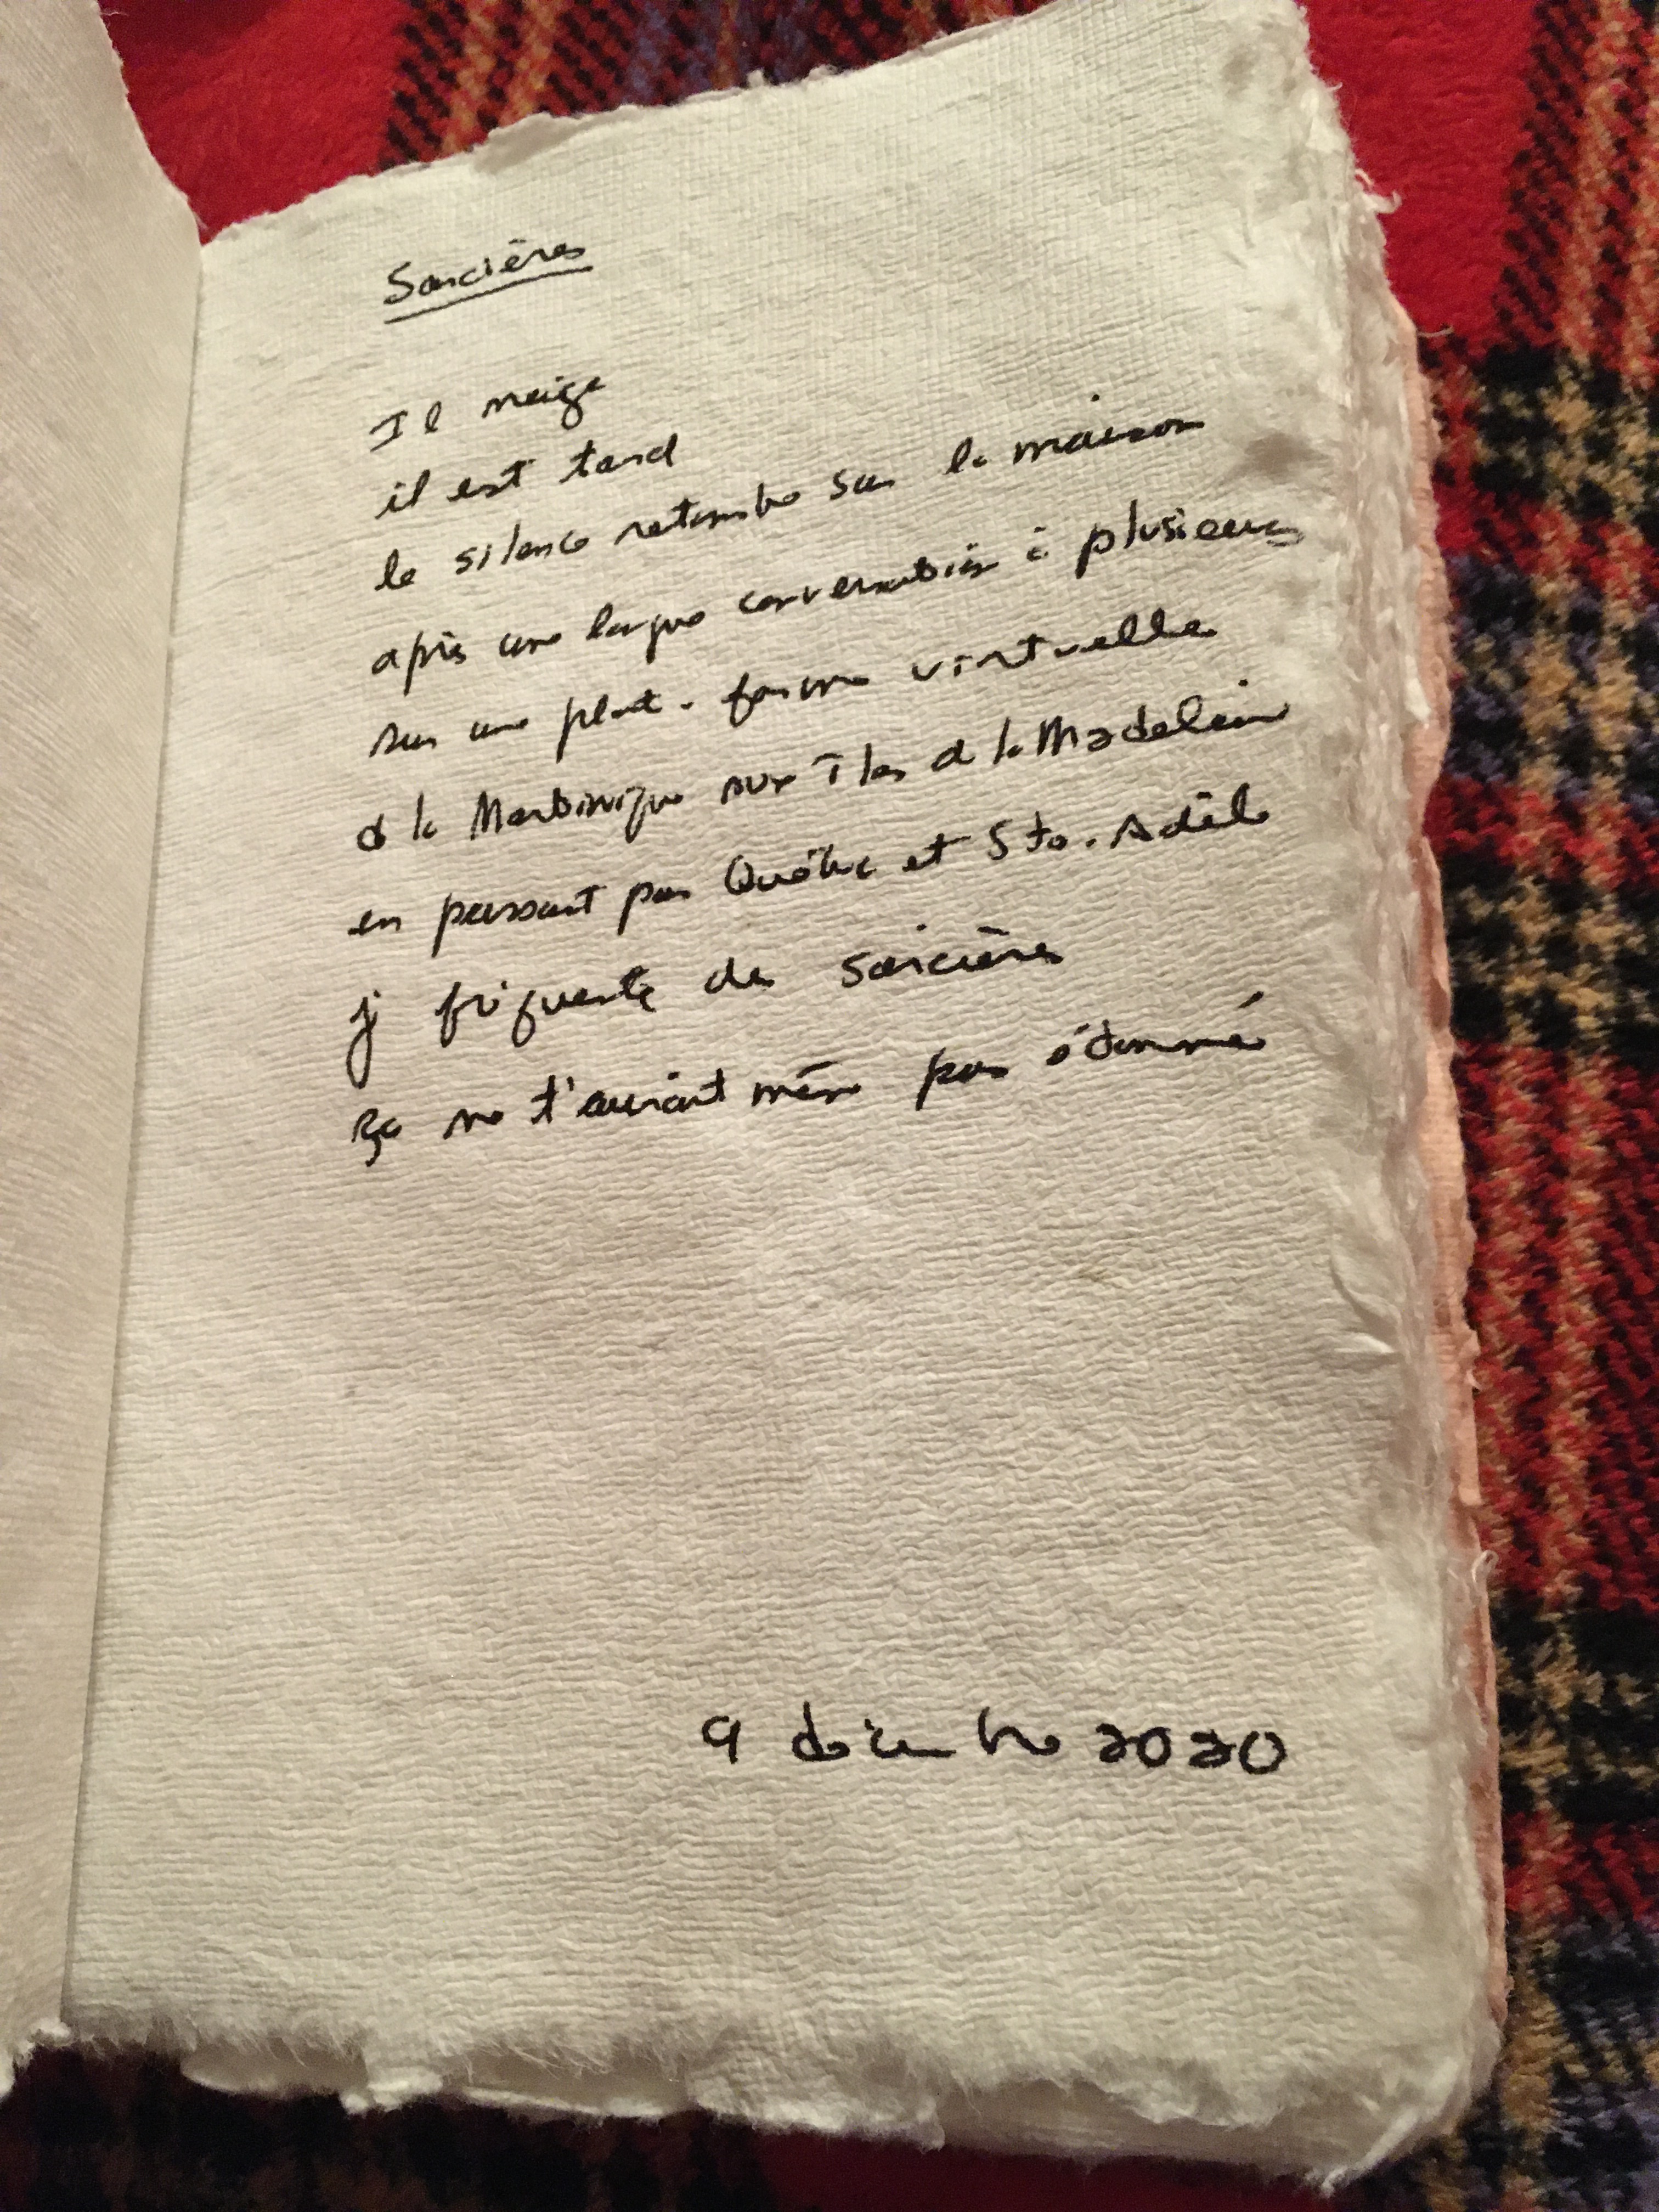 Sorcières
Il neige
il est tard
le silence retombe sur la maison
après une longue conversation à plusieurs
sur une plate-forme virtuelle
de la Martinique aux îles de la Madeleine
en passant par Québec et Ste-Adèle
je fréquente des sorcières
ça ne t'aurait même pas étonné
9 décembre 2020